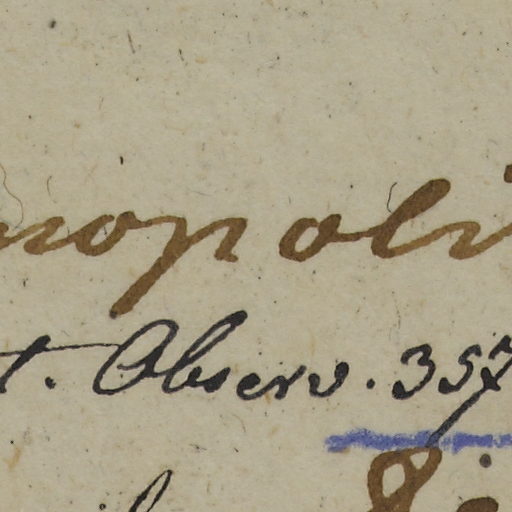 nopoli
t. Observ. 357